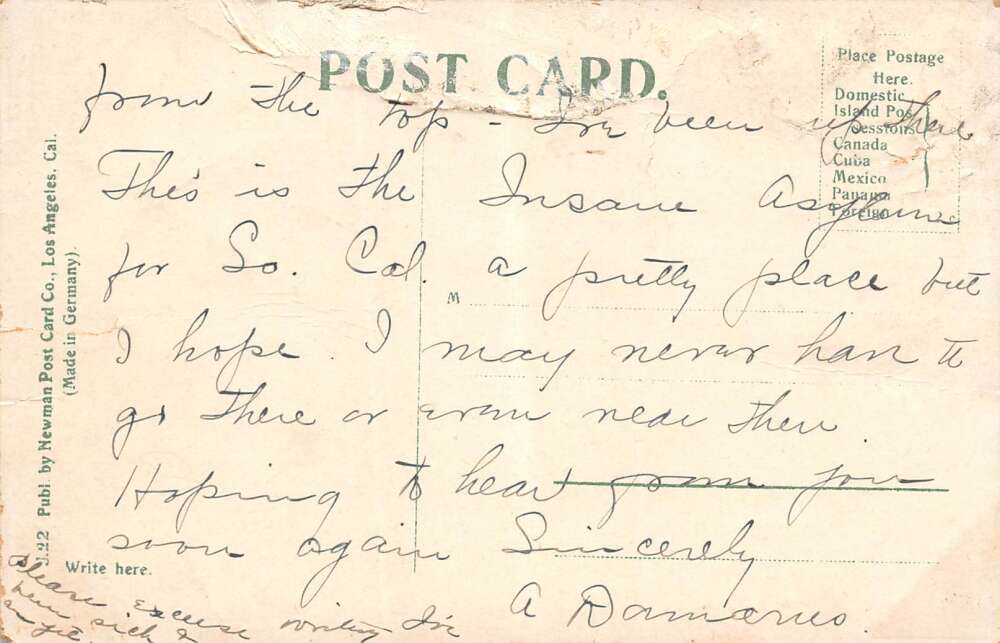 POST CARD.
Place Postage
Here.
Domestic
Island Pos-
sessions
Canada
Cuba
Mexico
Panama
Foreign
from the top - I've been up there
This is the Insane Asylum
for So. Cal. a pretty place but
M
I hope I may never have to
go there or even near there.
Hoping to hear from you
soon again Sincerely
A Damarus
Please excuse writing I've
been sick &
am yet
Write here.
J.22 Publ. by Newman Post Card Co., Los Angeles, Cal.
(Made in Germany).